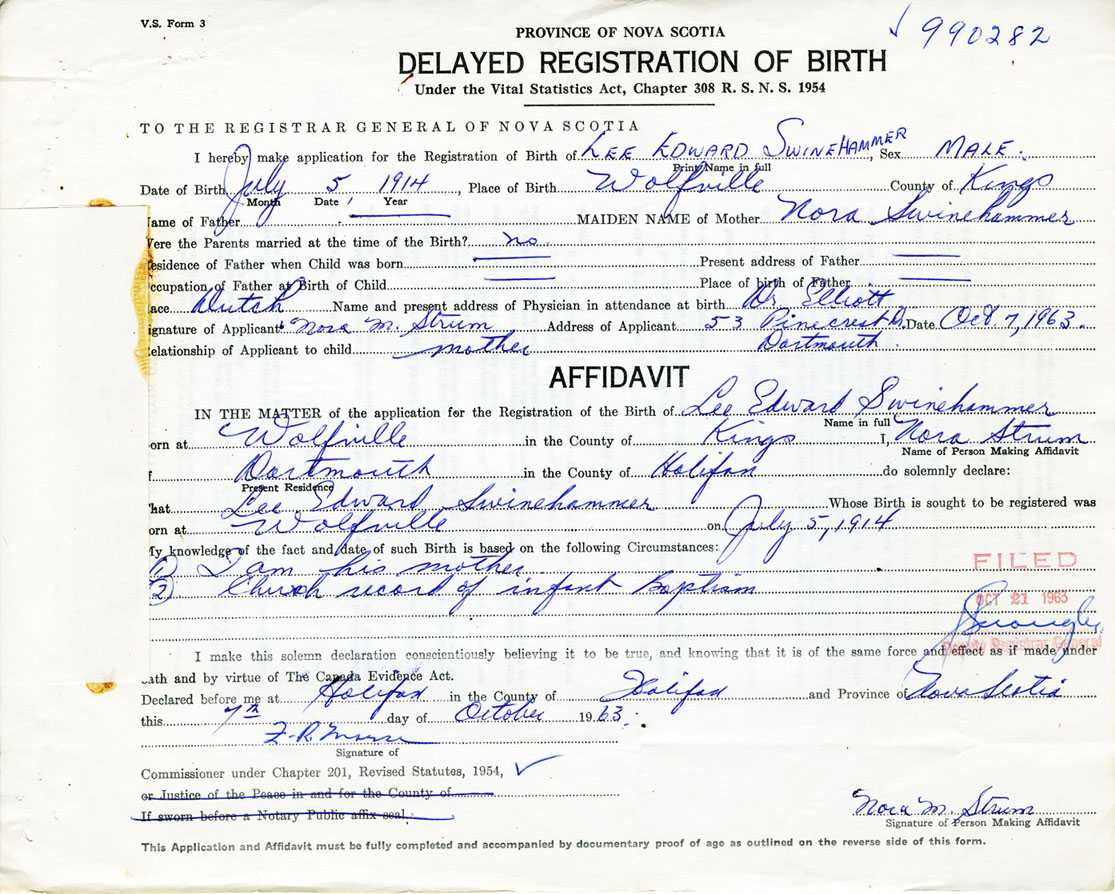 V.S. Form 3
✓ 990282
PROVINCE OF NOVA SCOTIA
DELAYED REGISTRATION OF BIRTH
Under the Vital Statistics Act, Chapter 308 R. S. N. S. 1954
TO THE REGISTRAR GENERAL OF NOVA SCOTIA
I hereby make application for the Registration of Birth of LEE EDWARD SWINEHAMMER, Sex MALE.
Print Name in full
Date of Birth July 5 1914, Place of Birth Wolfville County of Kings
Month Date Year
ame of Father MAIDEN NAME of Mother Nora Swinehammer
ere the Parents married at the time of the Birth? no
esidence of Father when Child was born Present address of Father
ccupation of Father at Birth of Child Place of birth of Father
ace Dutch Name and present address of Physician in attendance at birth Dr Elliott
ignature of Applicant Nora M. Strum Address of Applicant 53 Pinecrest D. Date Oct 7, 1963.
elationship of Applicant to child mother Dartmouth.
AFFIDAVIT
IN THE MATTER of the application for the Registration of the Birth of Lee Edward Swinehammer
Name in full
orn at Wolfville in the County of Kings I, Nora Strum
Name of Person Making Affidavit
f Dartmouth in the County of Halifax do solemnly declare:
Present Residence
hat Lee Edward Swinehammer Whose Birth is sought to be registered was
orn at Wolfville on July 5, 1914
My knowledge of the fact and date of such Birth is based on the following Circumstances:
(1) I am his mother
(2) Church record of infant Baptism
FILED
OCT 21 1963
Deputy Registrar General
I make this solemn declaration conscientiously believing it to be true, and knowing that it is of the same force and effect as if made under
ath and by virtue of The Canada Evidence Act.
Declared before me at Halifax in the County of Halifax and Province of Nova Scotia
this 7th day of October 1963.
Signature of
Commissioner under Chapter 201, Revised Statutes, 1954, ✓
or Justice of the Peace in and for the County of
If sworn before a Notary Public affix seal.
Nora M. Strum
Signature of Person Making Affidavit
This Application and Affidavit must be fully completed and accompanied by documentary proof of age as outlined on the reverse side of this form.